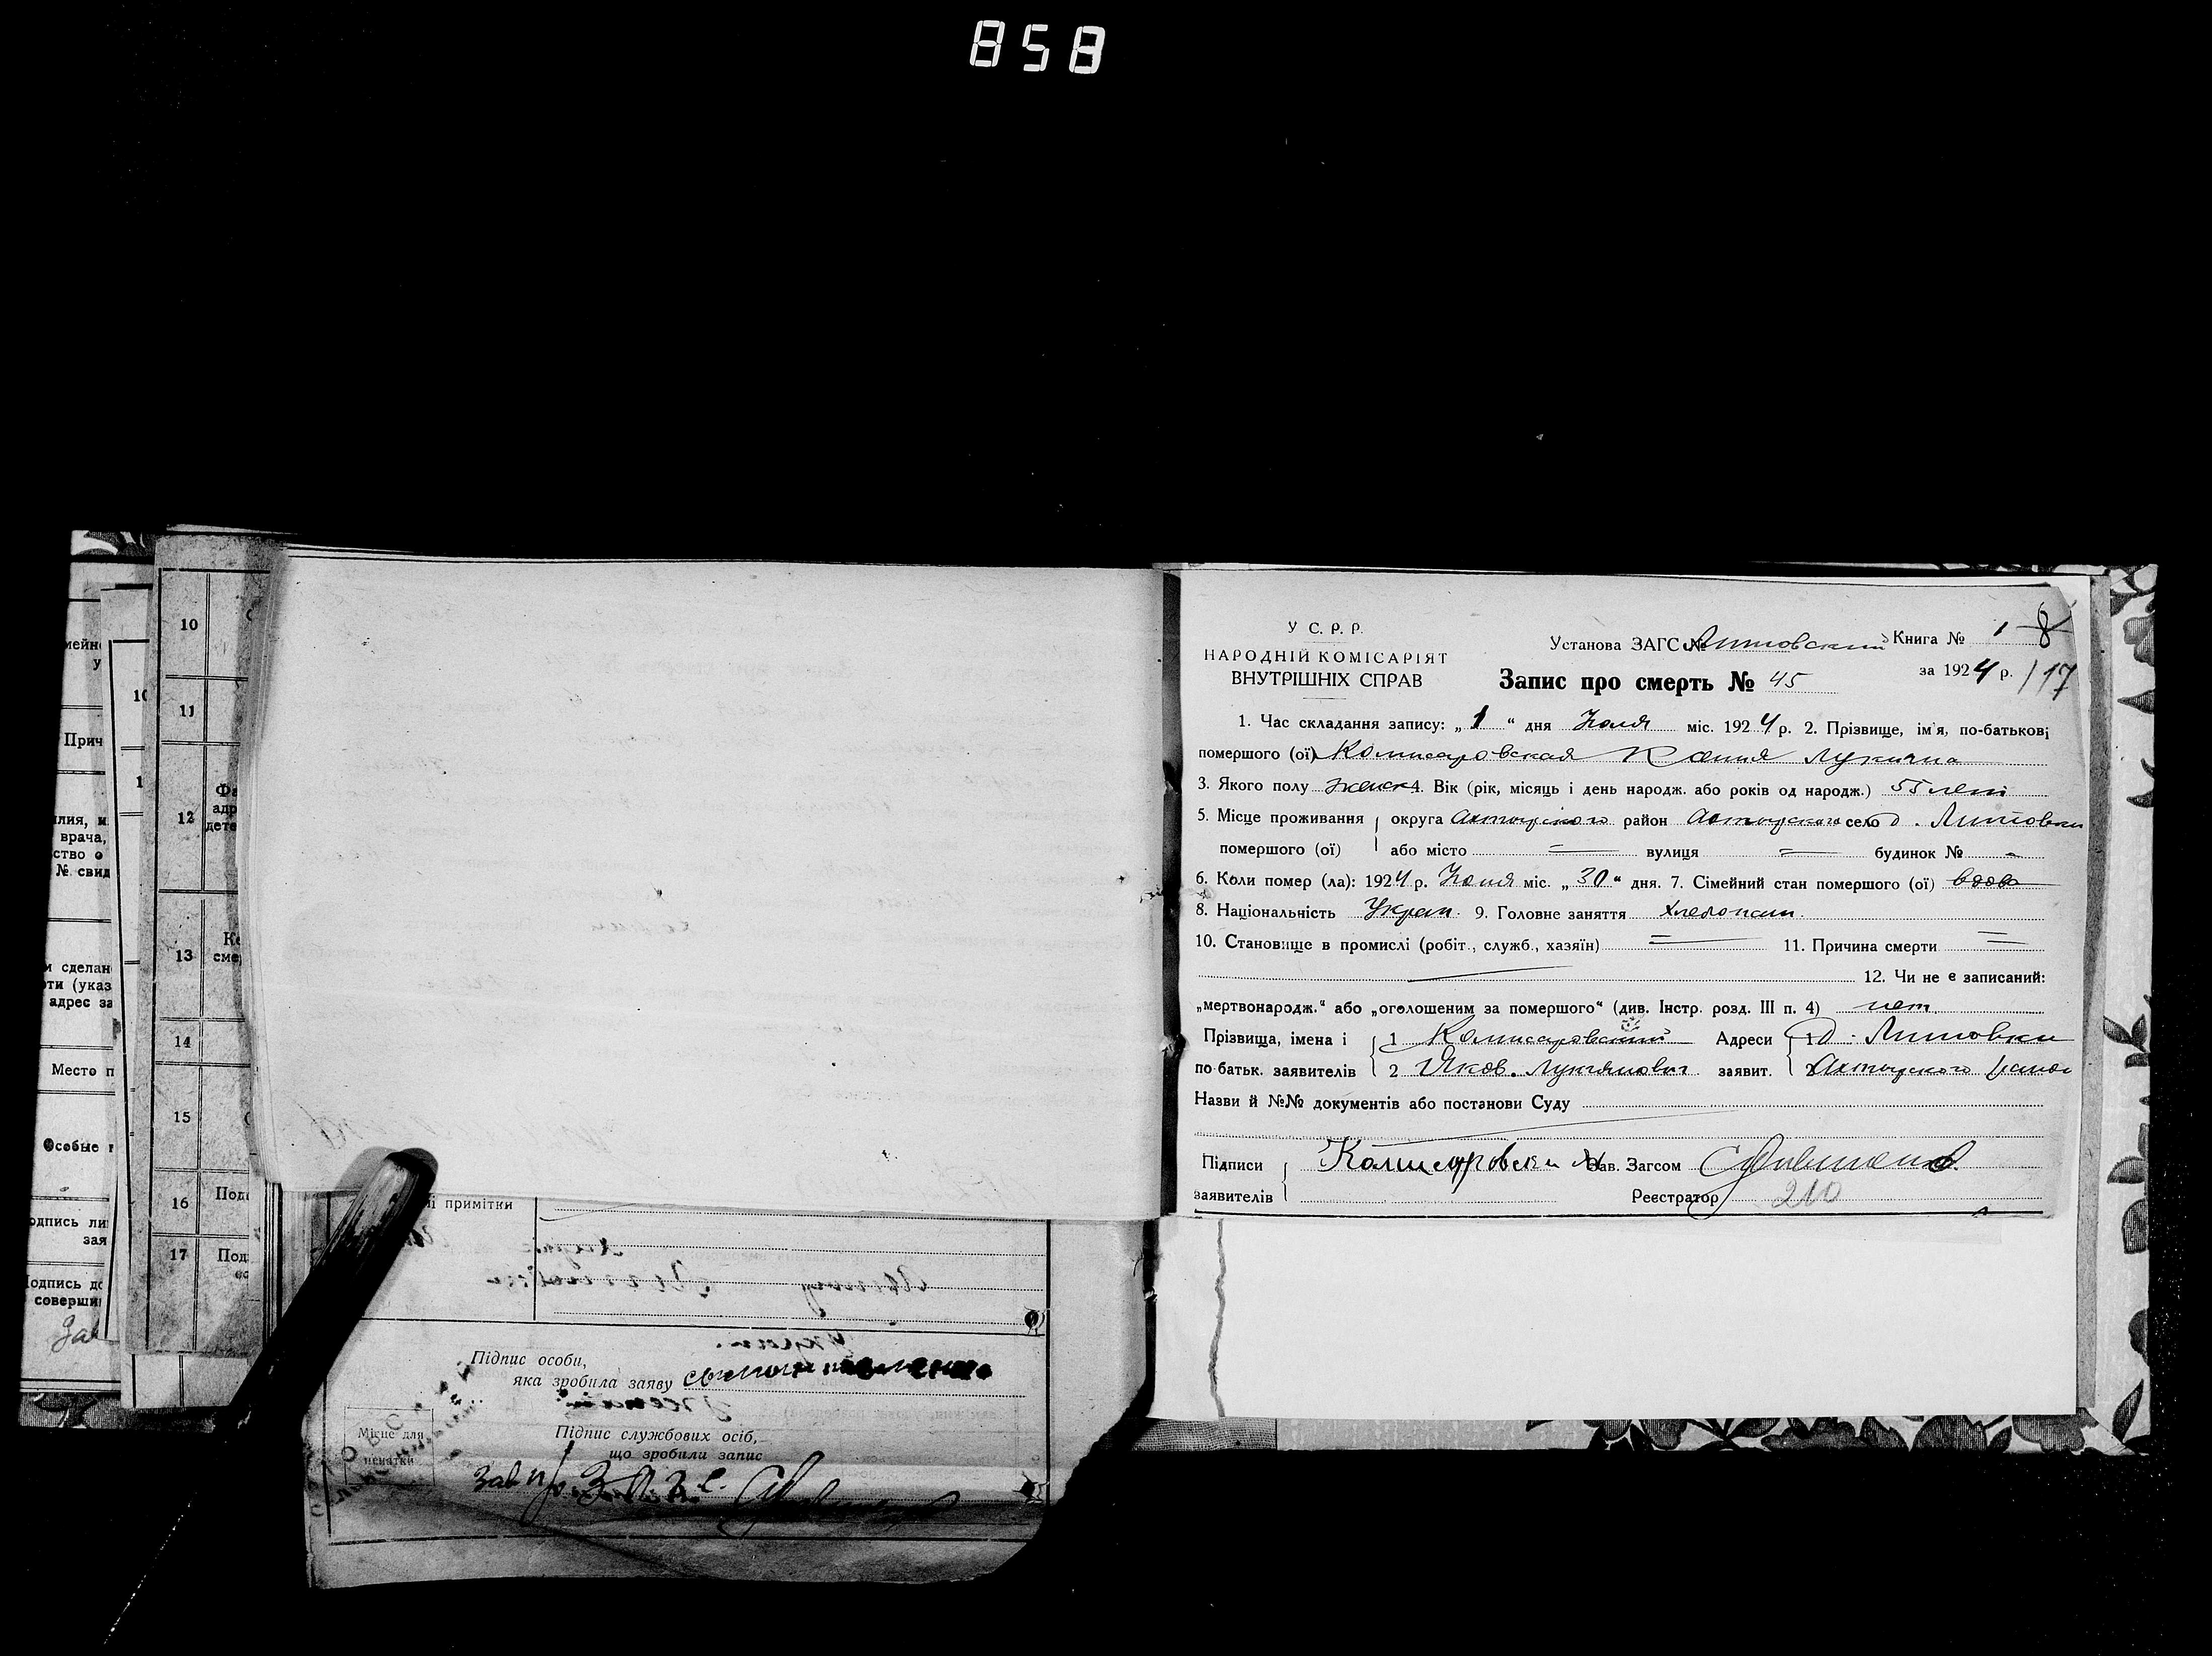 858
мейн
у
Прич
врача,
ство о
№ свид
м сделан
ти (указ
адрес за
Место п
Особые
одпись ли
зая
Подпись до
соверши
Зав
10
11
12
Фа
адр
дете
13
Ке
сме
14
15
16
Под
17
Под
і примітки
Підпис особи,
яка зробила заяву
Місце для
печатки
Підпис службових осіб,
що зробили запис
У С. Р. Р.
НАРОДНІЙ КОМІСАРІЯТ
ВНУТРІШНІХ СПРАВ
Установа ЗАГС № Липовский Книга № 1 8
за 1924 р. / 17
Запис про смерть № 45
1. Час складання запису: „1“ дня Июля міс. 1924 р. 2. Прізвище, ім'я, по-батькові
помершого (ої) Комисаровская Ксения Лукична
3. Якого полу женск 4. Вік (рік, місяць і день народж. або років од народж.) 55 лет
5. Місце проживання округа Ахтырского район Ахтырского село д. Липовки
помершого (ої) або місто = вулиця = будинок № -
6. Коли помер (ла): 1924 р. Июня міс. „30“ дня. 7. Сімейний стан помершого (ої) вдова
8. Національність Украин. 9. Головне заняття Хлебопаш.
10. Становище в промислі (робіт., служб., хазяїн) = 11. Причина смерти =
12. Чи не є записаний:
„мертвонародж.“ або „оголошеним за помершого“ (див. Інстр. розд. III п. 4) нет.
Прізвища, імена і 1 Комисаровский Адреси 1 д. Липовки
по батьк. заявителів 2 Яков. Лукьянович заявит. 2 Ахтырского района
Назви й №№ документів або постанови Суду
Підписи Комисаровски Я Зав. Загсом
заявителів Реєстратор 210